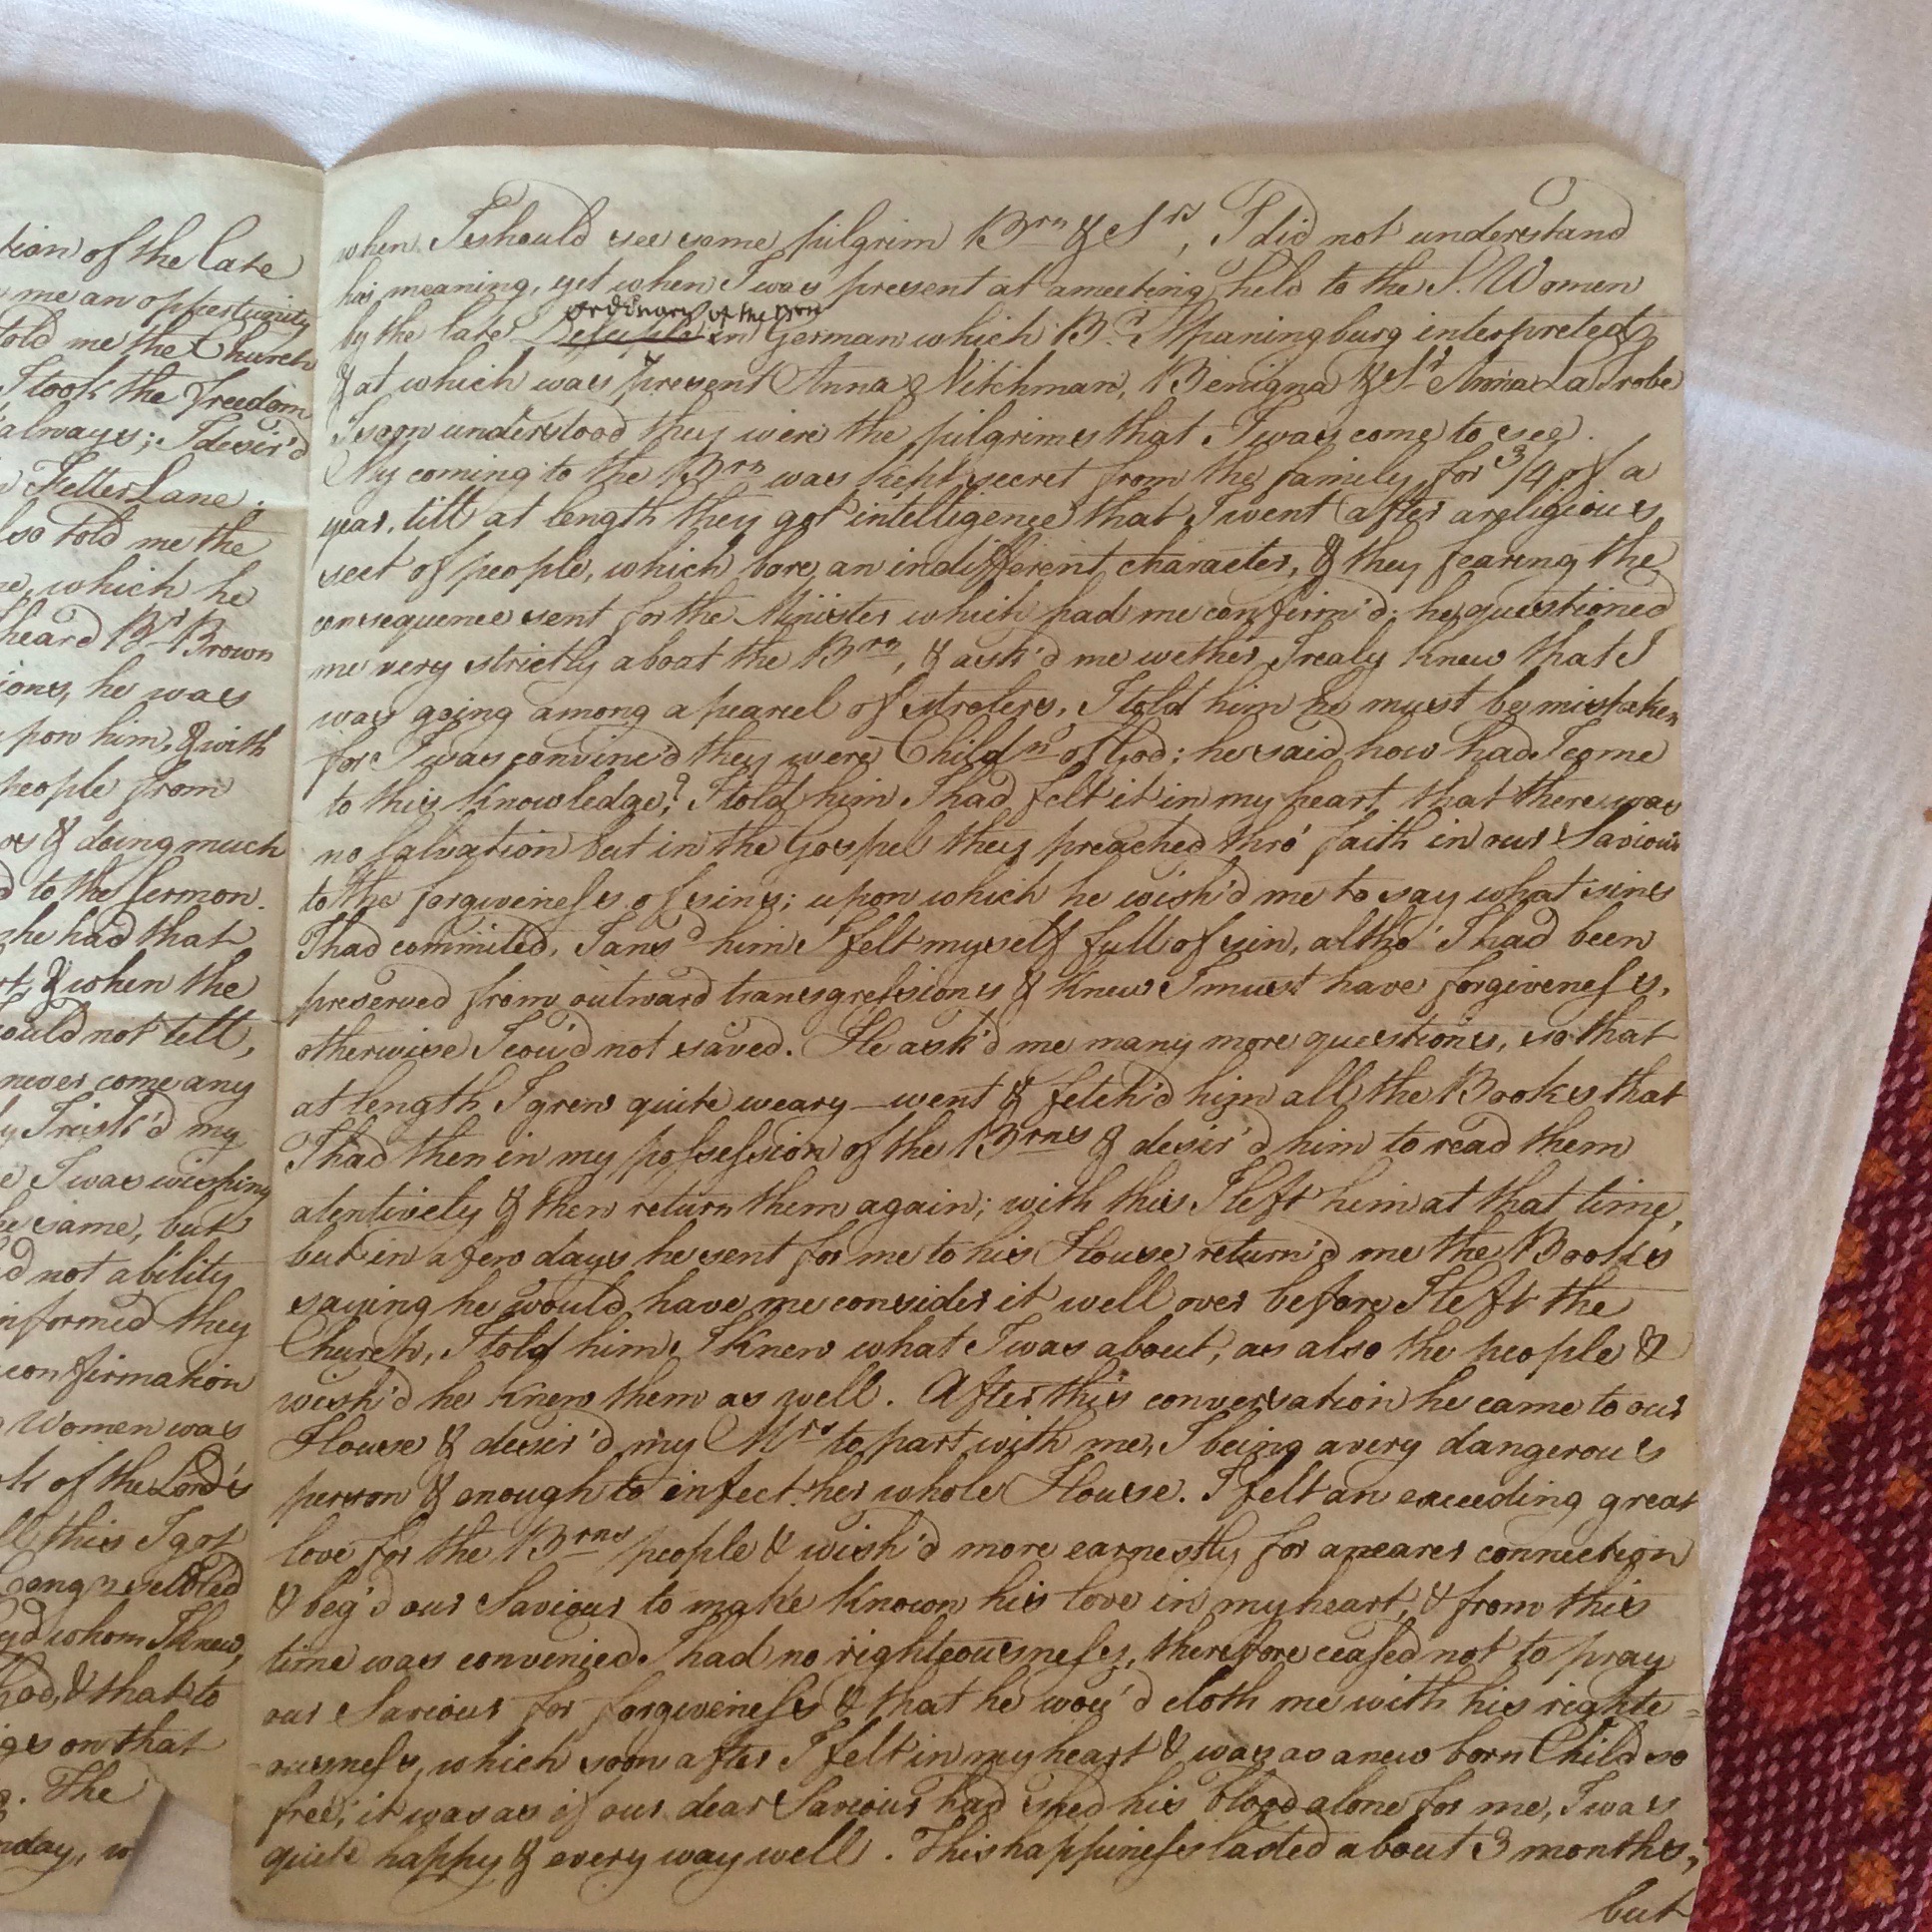 tion of the late
me an opportunity
told me the Church
I took the freedom
always; I desir'd
Fetter Lane.
also told me the
which he
heard Br. Brown
ions, he was
upon him, & with
people from
os & doing much
d to the Sermon.
he had that
& when the
could not tell,
never come any
I risk'd my
I was wishing
he same, but
d not ability
informed they
confirmation
Women was
k of the Lord's
ll this I got
Cong.n settled
whom I knew,
God, & that to
ges on that
The
nday, w
when I should see some pilgrim Brn & Srs, I did not understand
his meaning, yet when I was present at a meeting held to the S. Women
ordinary of the Brn
by the late Desciple in German which Br. Spaningburg interpreted,
& at which was present Anna Nitchman, Benigna & Sr. Anna La Trobe
I soon understood they were the pilgrims that I was come to see.
My coming to the Brn was kept secret from the family for 3/4 of a
year, till at length they got intelligence that I went after a religious
sect of people, which bore an indifferent character, & they fearing the
consequence sent for the Minister which had me confirm'd: he questioned
me very strictly about the Brn, & ask'd me wether I realy knew that I
was going among a pearcel of Strolers, I told him he must be mistaken
for I was convinc'd they were Childn of God; he said how had I come
to this knowledge? I told him I had felt it in my heart that there was
no Salvation but in the Gospel they preached thro' faith in our Saviour
to the forgiveness of sins; upon which he wish'd me to say what sins
I had commited, I ansd him I felt myself full of sin, altho' I had been
preserved from outward transgressions & knew I must have forgiveness,
otherwise I cou'd not saved. He ask'd me many more questions, so that
at length I grew quite weary—went & fetch'd him all the Books that
I had then in my possession of the Brns & desir'd him to read them
atentively & then return them again; with this I left him at that time,
but in a few days he sent for me to his House return'd me the Books
saying he would have me consider it well over before I left the
Church, I told him I knew what I was about, as also the people &
wish'd he knew them as well. After this conversation he came to our
House & desir'd my Mrs to part with me, I being a very dangerous
person & enough to infect her whole House. I felt an exceeding great
love for the Brns people & wish'd more earnestly for a nearer connection
& beg'd our Saviour to make known his love in my heart, & from this
time was convenied I had no righteousness, therefore ceased not to pray
our Saviour for forgiveness & that he wou'd cloth me with his righte=
=ousness, which soon after I felt in my heart & was as a new born Child so
free; it was as if our dear Saviour had shed his blood alone for me, I was
quite happy & every way well. This happiness lasted about 3 months,
but